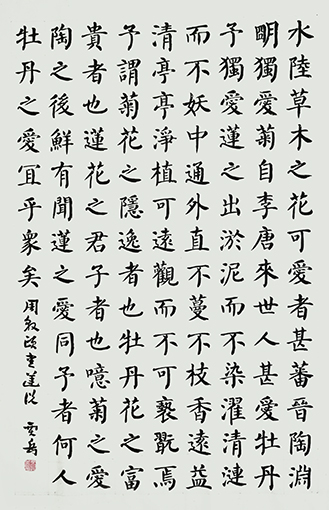 水陸草木之花可愛者甚蕃晉陶淵
眀獨愛菊自李唐來世人甚愛牡丹
予獨愛蓮之出淤泥而不染濯清漣
而不妖中通外直不蔓不枝香遠益
清亭亭淨植可遠觀而不可褻翫焉
予謂菊花之隱逸者也牡丹花之富
貴者也蓮花之君子者也噫菊之愛
陶之後鮮有聞蓮之愛同予者何人
牡丹之愛宜乎衆矣周敦頤愛蓮說